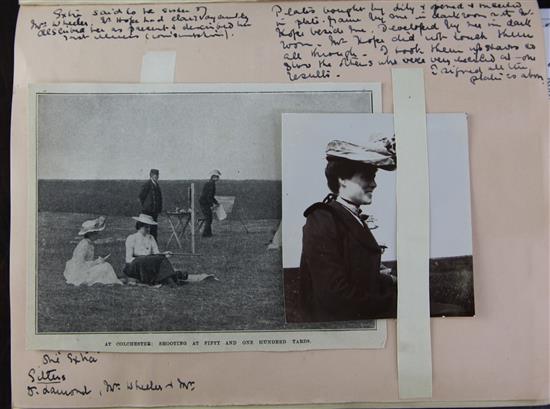 Extra said to be sister of
Mrs Wheeler. Mr Hope had clairvoyantly
described her as present & described his
last illness (consumption).
Plates bought by dity & opened & inserted
in plate frame by me in darkroom with Mr
Hope beside me. Developed by me in dark
room. Mr Hope did not touch them
all through. I took them upstairs to
show the others who were very excited at
results. I signed all the
plates as above.
AT COLCHESTER: SHOOTING AT FIFTY AND ONE HUNDRED YARDS.
One Extra
Sitters
Dr Lamond, Mrs Wheeler & Mr.